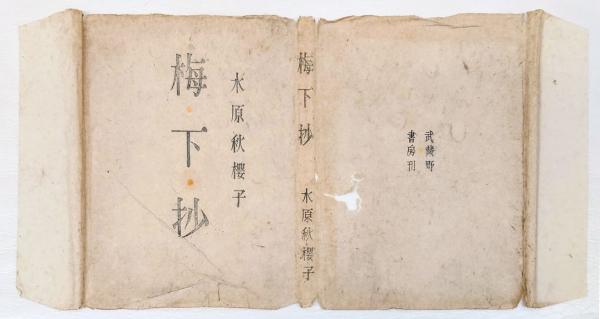 梅・下・抄
水原秋櫻子
梅下抄 水原秋櫻子
武藏野
書房刊